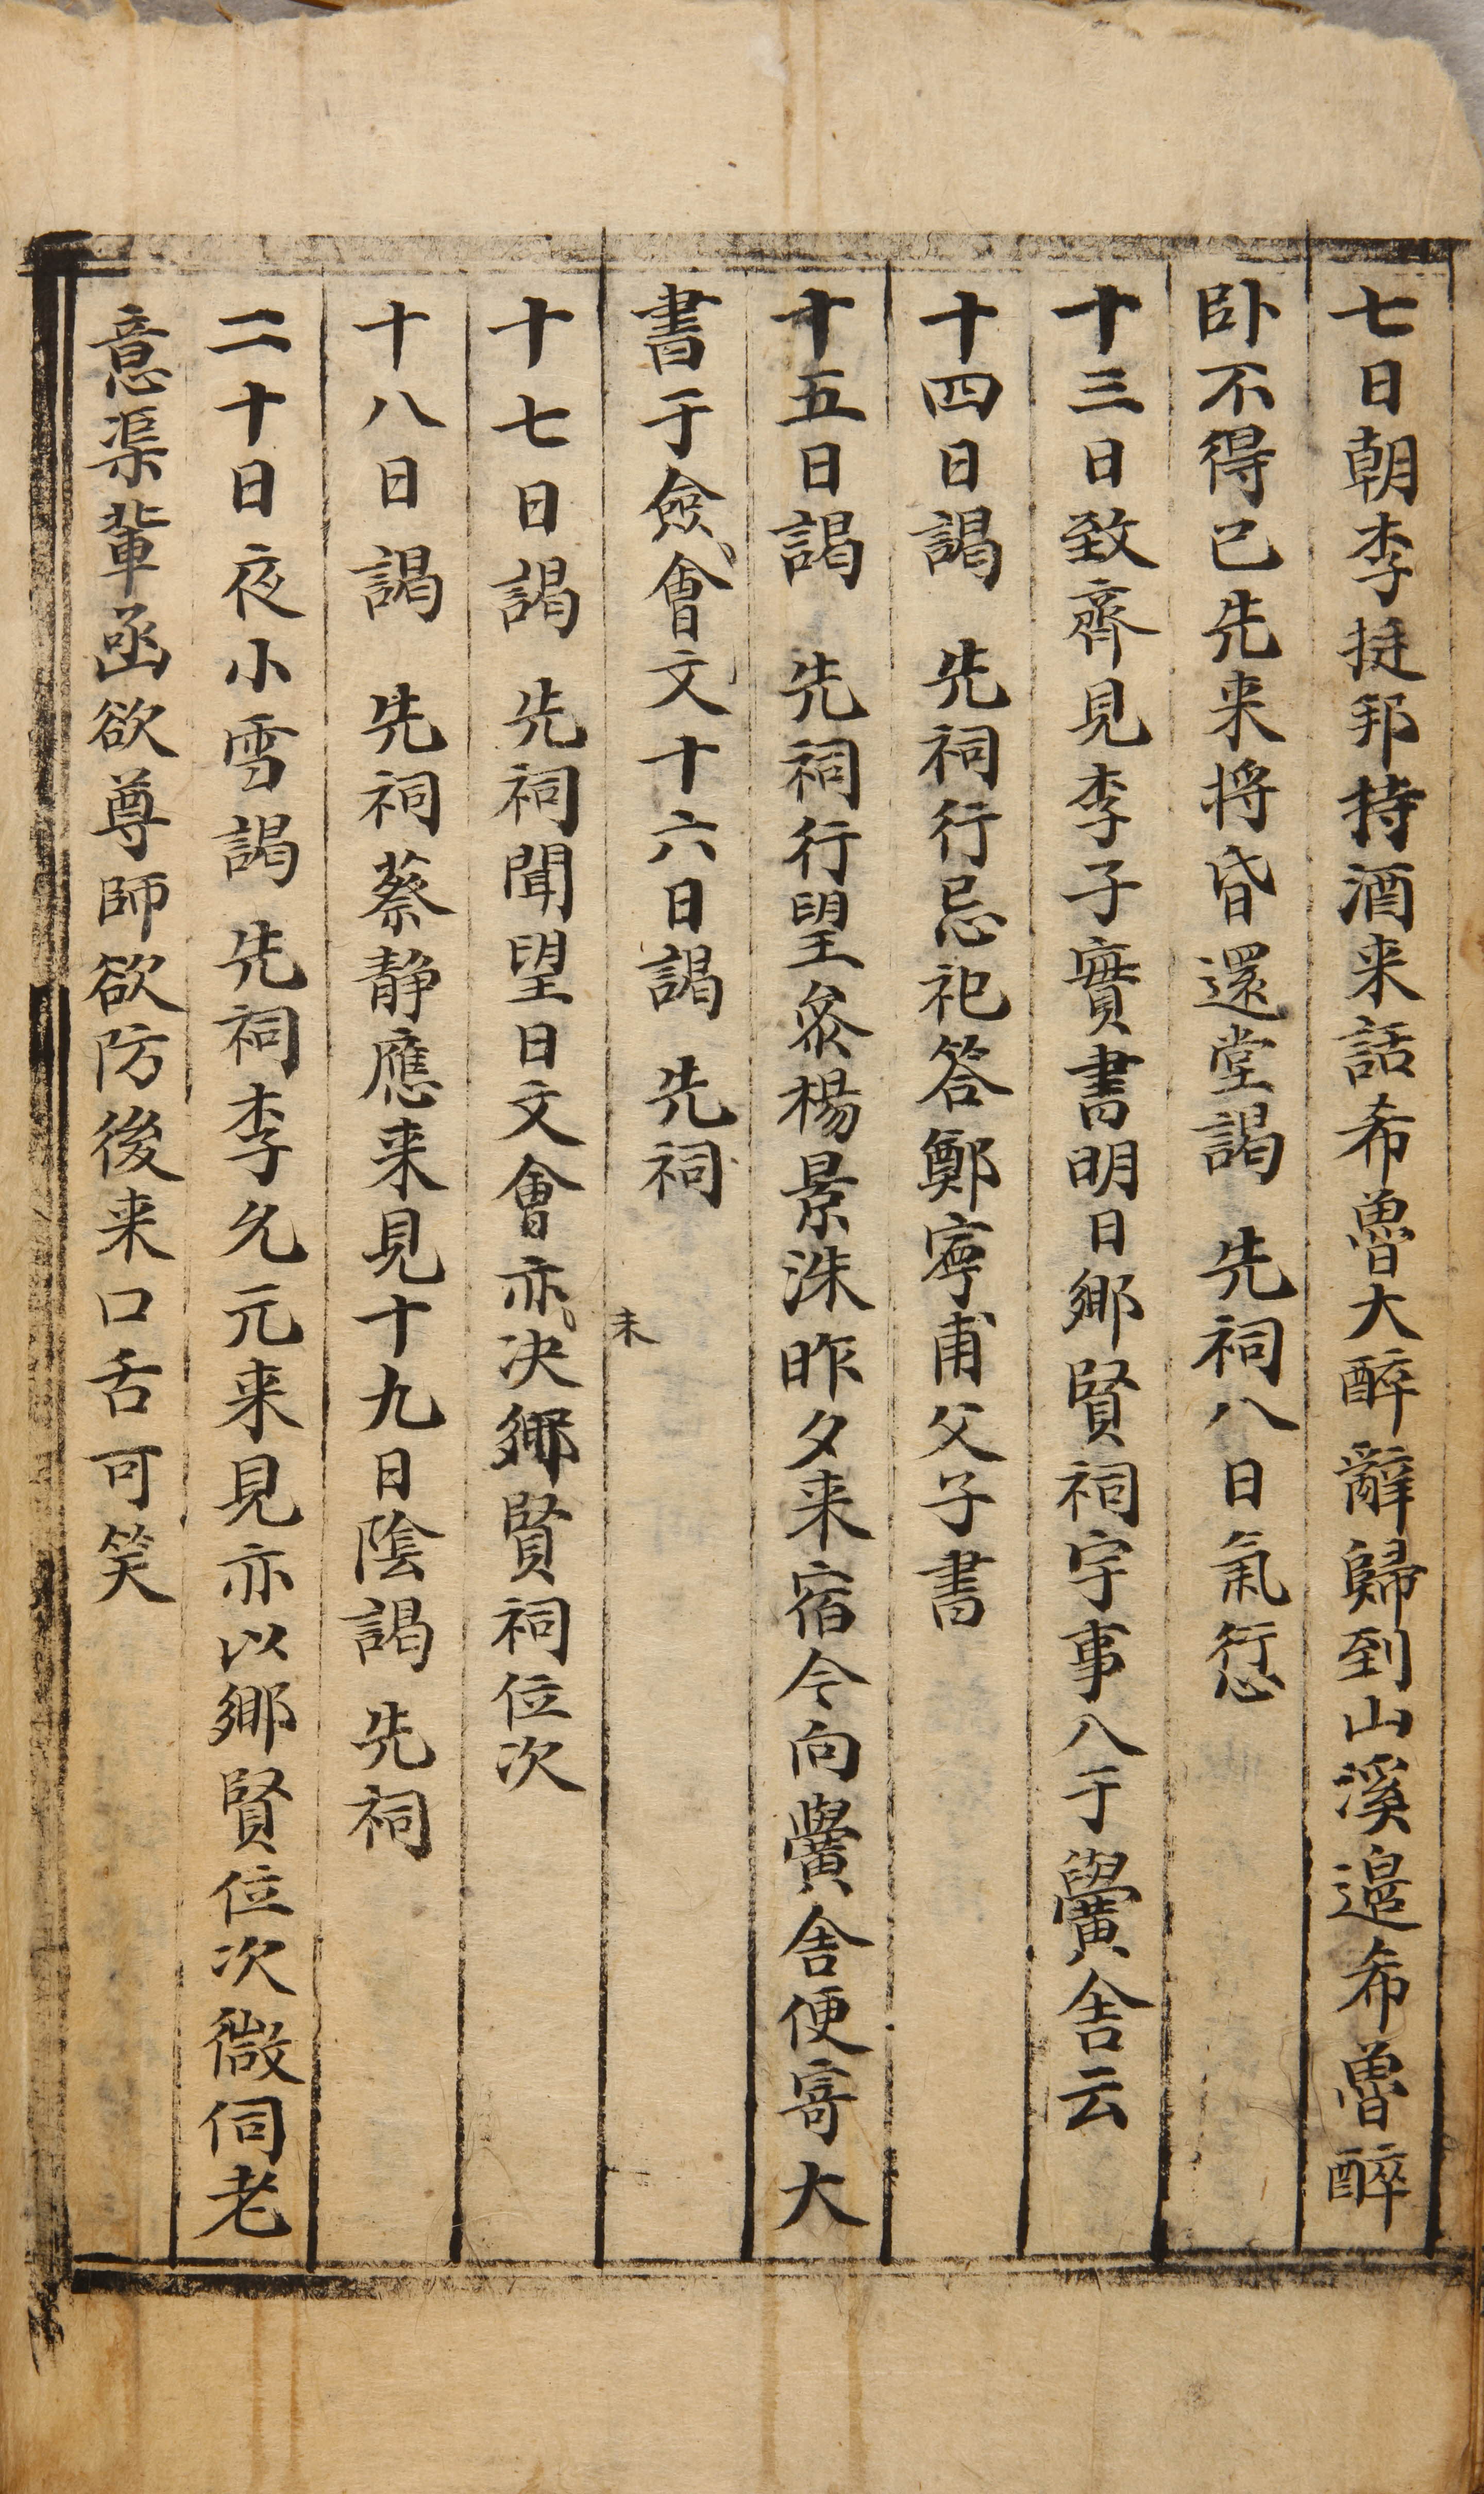 七日朝李挺邦持酒来話希魯大醉辭歸到山溪邉希魯醉
卧不得已先来将昏還堂謁 先祠八日氣愆
十三日致齊見李子實書明日鄉賢祠宇事八于黌舍云
十四日謁 先祠行忌祀答鄭寧甫父子書
十五日謁 先祠行望奠楊景洙昨夕来宿今向黌舍便寄大
書于僉會文十六日謁 先祠
十七日謁 先祠聞望日文會亦未决鄉賢祠位次
十八日謁 先祠蔡静應来見十九日陰謁 先祠
二十日夜小雪謁 先祠李允元来見亦以鄉賢位次微伺老
意渠輩亟欲尊師欲防後来口舌可笑